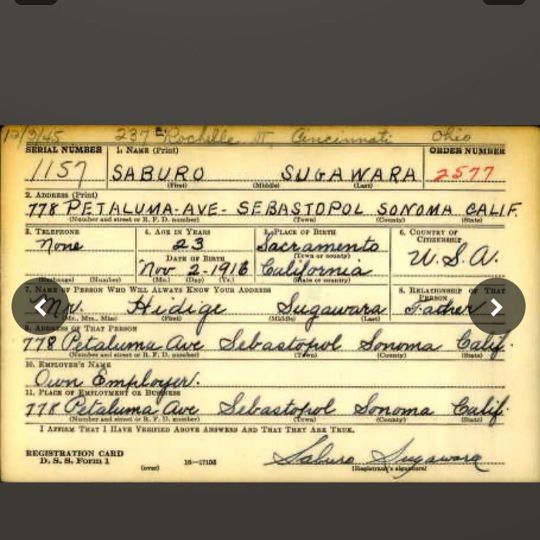 12/3/45 237 E. Rochelle St Cincinnati Ohio
SERIAL NUMBER 1. NAME (Print) ORDER NUMBER
1157 SABURO SUGAWARA 2577
(First) (Middle) (Last)
2. ADDRESS (Print)
778 PETALUMA-AVE- SEBASTOPOL SONOMA CALIF.
(Number and street or R. F. D. number) (Town) (County) (State)
3. TELEPHONE 4. AGE IN YEARS 5. PLACE OF BIRTH 6. COUNTRY OF CITIZENSHIP
None 23 Sacramento
(Town or county)
DATE OF BIRTH U.S.A.
Nov. 2-1916 California
(Exchange) (Number) (Mo.) (Day) (Yr.) (State or country)
7. NAME OF PERSON WHO WILL ALWAYS KNOW YOUR ADDRESS 8. RELATIONSHIP OF THAT PERSON
Mr. Hidige Sugawara Father
(Mr., Mrs., Miss) (First) (Middle) (Last)
9. ADDRESS OF THAT PERSON
778 Petaluma Ave Sebastopol Sonoma Calif.
(Number and street or R. F. D. number) (Town) (County) (State)
10. EMPLOYER'S NAME
Own Employer.
11. PLACE OF EMPLOYMENT OR BUSINESS
778 Petaluma Ave Sebastopol Sonoma Calif.
(Number and street or R. F. D. number) (Town) (County) (State)
I AFFIRM THAT I HAVE VERIFIED ABOVE ANSWERS AND THAT THEY ARE TRUE.
REGISTRATION CARD
D. S. S. Form 1 (over) 16—17105 Saburo Sugawara
(Registrant's signature)